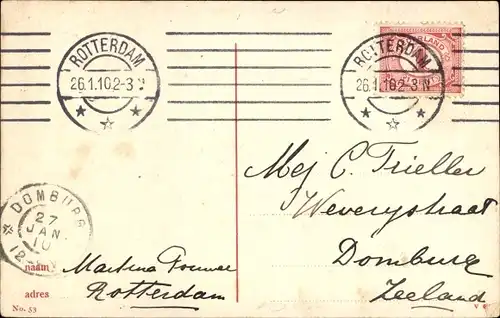 ROTTERDAM
26.1.10.2-3 N
ROTTERDAM
26.1.10.2-3 N
Mej C. Trieller
Weverystraat
Domburg
Zeeland
DOMBURG
27
JAN.
10
naam Martina
adres Rotterdam
No. 53